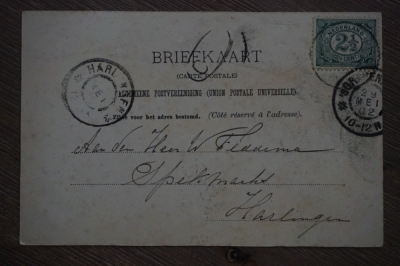 NEDERLAND
2½
BRIEFKAART
(CARTE POSTALE)
ALGEMEENE POSTVEREENIGING (UNION POSTALE UNIVERSELLE)
Zijde voor het adres bestemd. (Côté réservé à l'adresse).
HARLINGEN
29
MEI
02
10-12V
Aan den Heer W Feddema
Spekmarkt
Harlingen